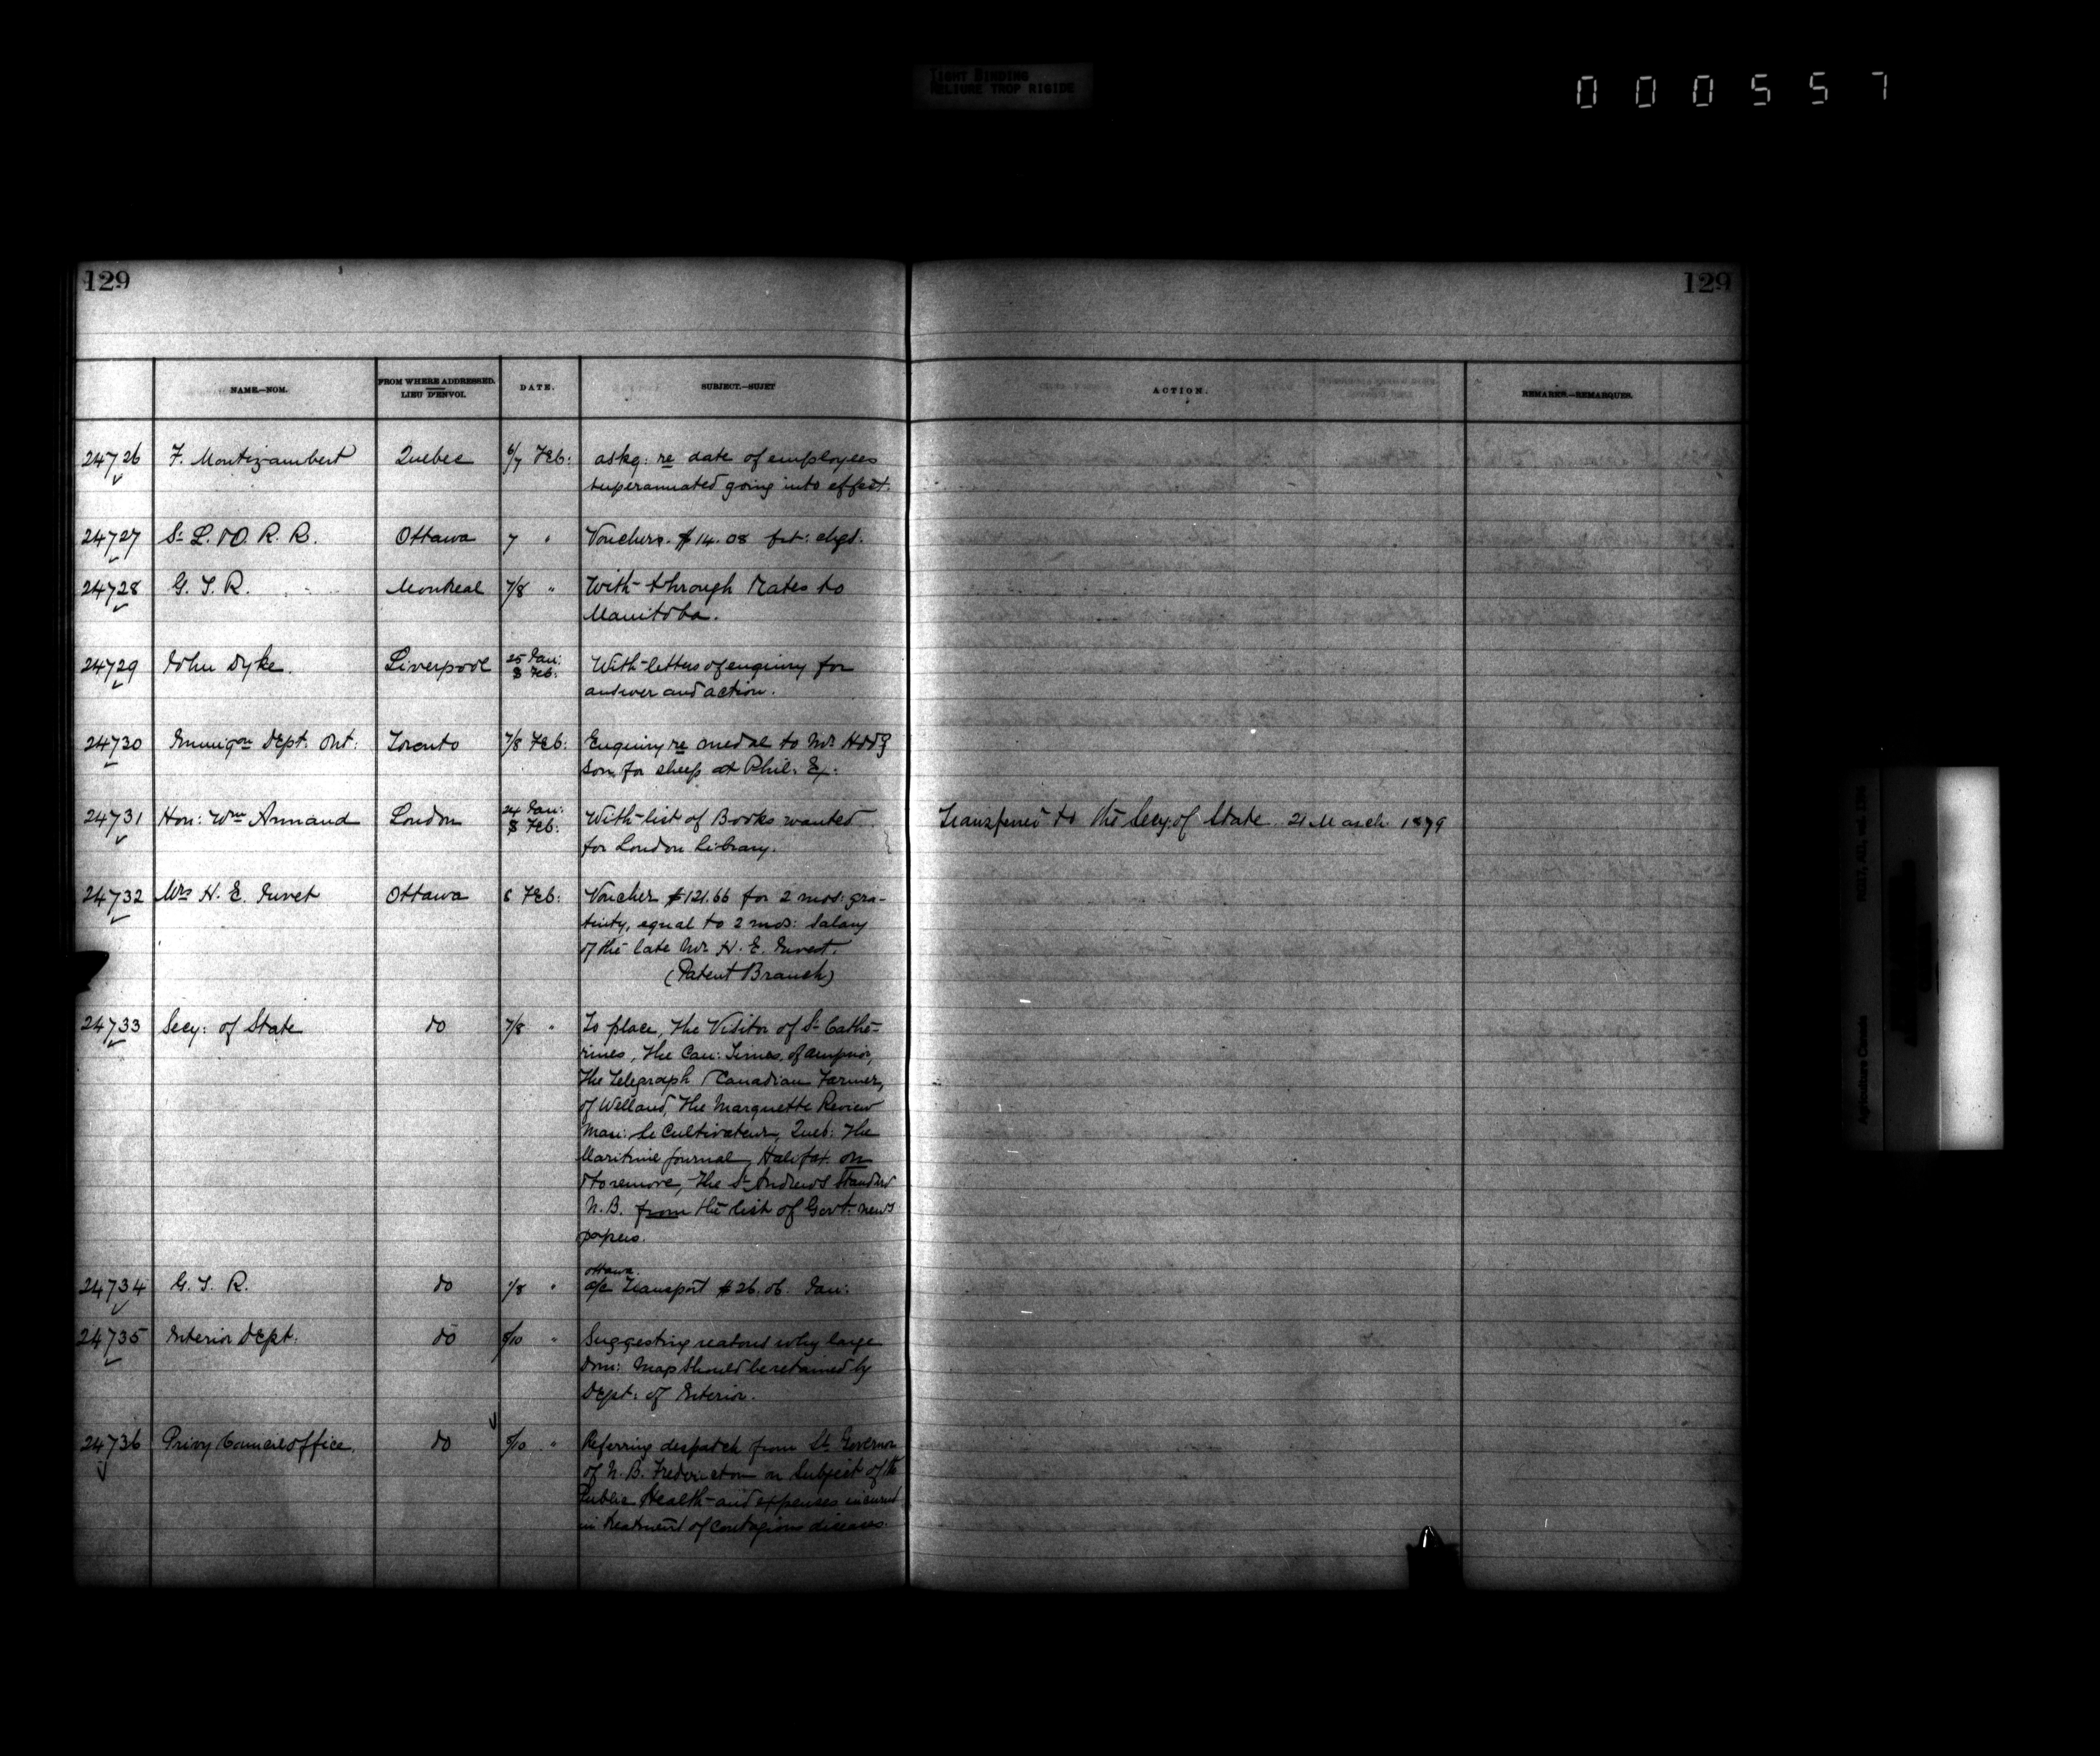 TIGHT BINDING
RELIURE TROP RIGIDE
000557
129
129
NAME.—NOM.
FROM WHERE ADDRESSED.
LIEU D'ENVOI.
DATE.
SUBJECT.—SUJET
ACTION.
REMARKS.—REMARQUES.
24726 F. Montizambert Quebec 6/7 Feb: askg: re date of employees
superannuated going into effect.
24727 St L. & O. R. R. Ottawa 7 " Vouchers. $14.08 frt: chgs.
24728 G. T. R. Montreal 7/8 " With through Rates to
Manitoba.
24729 John Dyke. Liverpool 25 Jan: 8 Feb: With letters of enquiry for
answer and action.
24730 Immigon Dept. Ont: Toronto 7/8 Feb: Enquiry re medal to Mr Hodg
son, for sheep at Phil. Ex:
24731 Hon: Wm Annand London 24 Jan: 8 Feb: With list of Books wanted Transferred to the Secy. of State 21 March 1879
for London Library.
24732 Mrs H. E. Ottawa 8 Feb: Voucher $121.66 for 2 mos: gra-
tuity, equal to 2 mos: salary
of the late Mr. H. E.
(Patent Branch)
24733 Secy: of State do 7/8 " To place, the Visitor of St Cathe-
rines, The Can: Times, of Arnprior,
The Telegraph Canadian Farmer,
of Welland, The Marquette Review
Man: Le Cultivateur, Queb: The
Maritime Journal, Halifax on
& to remove, The St Andrews Standard
N.B. from the list of Govt: news
papers.
24734 G. T. R. do /8 " Ottawa.
a/c Transport $26.06 Jan:
24735 Interior Dept. do /10 " Suggesting reasons why large
Dom: Map should be retained by
Dept: of Interior.
24736 Privy Council Office. do /10 " Referring despatch from Lt Governor
of N. B. Fredericton on subject of the
Public Health and expenses incurred
in treatment of contagious diseases.
Agriculture Canada
RG17, AII, vol.